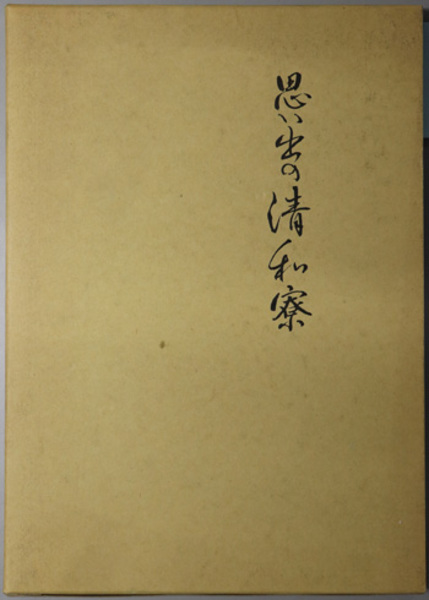 思い出の清和寮